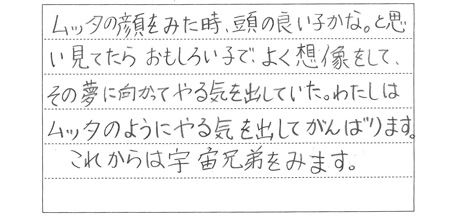 ムッタの顔をみた時、頭の良い子かな。と思
い見てたら おもしろい子で、よく想像をして、
その夢に向かってやる気を出していた。わたしは
ムッタのようにやる気を出してがんばります。
これからは宇宙兄弟をみます。